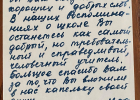 хороших добрых слов.
В наших воспомина-
ниях о школе Вы
останетесь как самой
доброй, но требователь-
ной и справедливой
человечной учитель,
большое спасибо Вам
за то что Вы вложили
в нас капельку своей